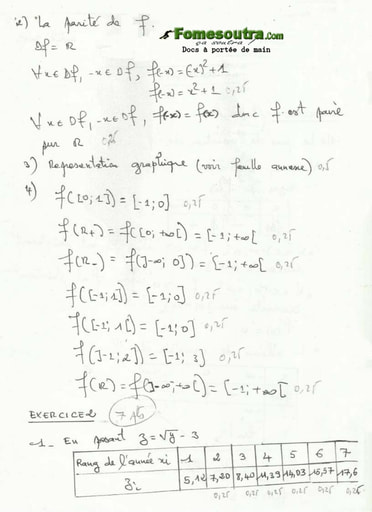 2) La parité de f.
Fomesoutra.com
ça soutra !
Docs à portée de main
Df = R
∀x∈Df, -x∈Df, f(-x) = (-x)²+1
f(-x) = x²+1 0,25
∀x∈Df, -x∈Df, f(-x) = f(x) donc f est paire
sur R 0,25
3) Representation graphique (voir feuille annexe) 0,5
4)
f([0;1]) = [-1;0] 0,25
f(R+) = f([0;+∞[) = [-1;+∞[ 0,25
f(R-) = f(]-∞;0]) = [-1;+∞[ 0,25
f([-1;1]) = [-1;0] 0,25
f([-1;1[) = [-1;0] 0,25
f(]-1;2]) = [-1;3] 0,25
f(R) = f(]-∞;+∞[) = [-1;+∞[ 0,25
EXERCICE 2
-1- En posant z = √y - 3
Rang de l'année xi 1 2 3 4 5 6 7
zi 5,12 7,20 8,40 11,39 14,03 15,57 17,6
0,25 0,25 0,25 0,25 0,25 0,25